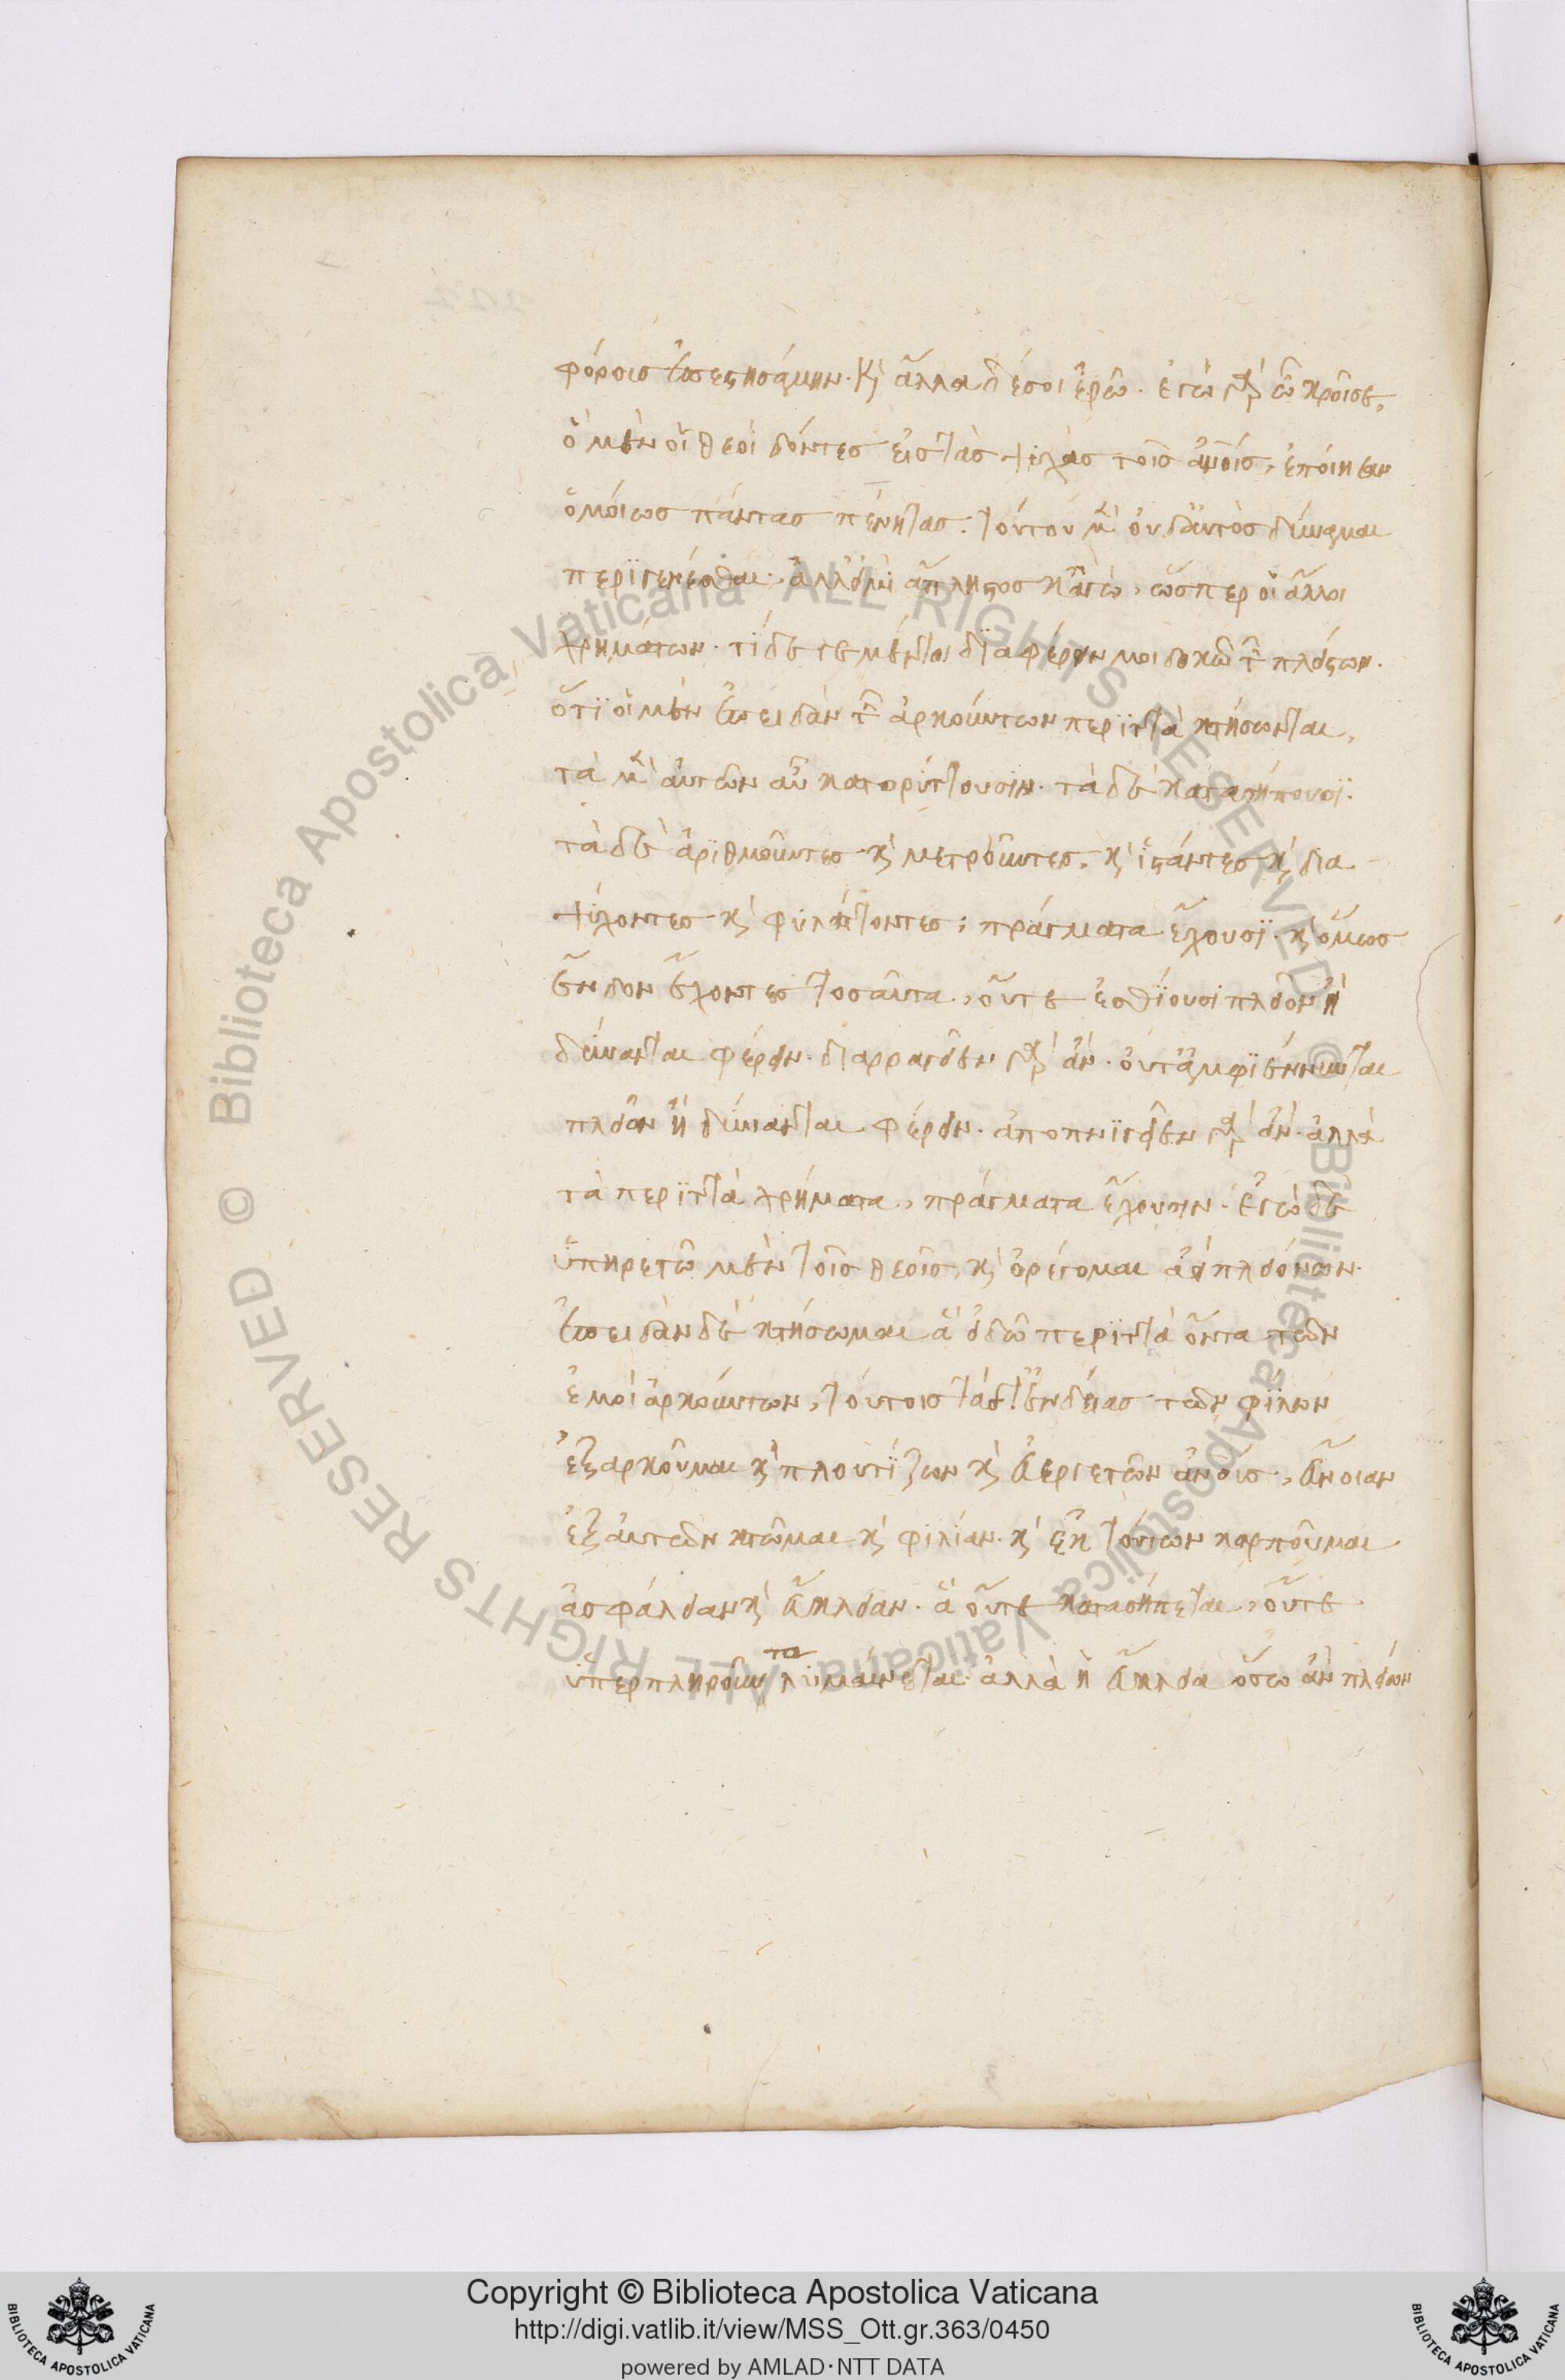 φόροις ἐπεστησάμην. κ ἄλλα δέ σοι ἐρῶ. ἐγὼ γὰρ ὦ κροῖσε,
ὃ μὲν οἱ θεοὶ δόντες εἰς τὰς ψυχὰς τοῖς ἀνοῖς, ἐποίησαν
ὁμοίως πάντας πένητας. τούτου μὲν οὐδ αὐτὸς δύναμαι
περιγενέσθαι. ἀλλ εἰμὶ ἄπληστος κἀγὼ, ὥσπερ οἱ ἄλλοι
χρημάτων. τί δέ γε μέντοι διαφέρειν μοι δοκῶ τῶν πλείστων.
ὅτι οἱ μὲν ἐπειδὰν τῶν ἀρκούντων περιττὰ κτήσωνται,
τὰ μὲν αὐτῶν αὖ κατορύττουσιν. τὰ δὲ κατασήπουσι.
τὰ δὲ ἀριθμοῦντες κ μετροῦντες, κ ἱστάντες κ δια
ψύχοντες κ φυλάττοντες, πράγματα ἔχουσι. κ ὅμως
ἔνδον ἔχοντες τοσαῦτα, οὔτε ἐσθίουσι πλεῖον ἢ
δύνανται φέρειν. διαρραγεῖεν γὰρ ἄν. οὔτ ἀμφιέννυνται
πλεῖον ἢ δύνανται φέρειν. ἀποπνιγεῖεν γὰρ ἄν. ἀλλὰ
τὰ περιττὰ χρήματα, πράγματα ἔχουσιν. ἐγὼ δὲ
ὑπηρετῶ μὲν τοῖς θεοῖς, κ ὀρέγομαι ἀεὶ πλειόνων.
ἐπειδὰν δὲ κτήσωμαι ἃ εἰδῶ περιττὰ ὄντα τῶν
ἐμοὶ ἀρκούντων, τούτοις τάς τ ἐνδείας τῶν φίλων
ἐξαρκοῦμαι κ πλουτίζων κ εὐεργετῶν ἀνοις, εὔνοιαν
ἐξ αὐτῶν κτῶμαι κ φιλίαν. κ ἐκ τούτων καρποῦμαι
ἀσφάλειαν κ εὔκλειαν. ἃ οὔτε κατασήπεται, οὔτε
ὑπερπληροῦντα λυμαίνεται. ἀλλὰ ἡ εὔκλεια ὅσῳ ἂν πλείων
Copyright © Biblioteca Apostolica Vaticana
http://digi.vatlib.it/view/MSS_Ott.gr.363/0450
powered by AMLAD·NTT DATA